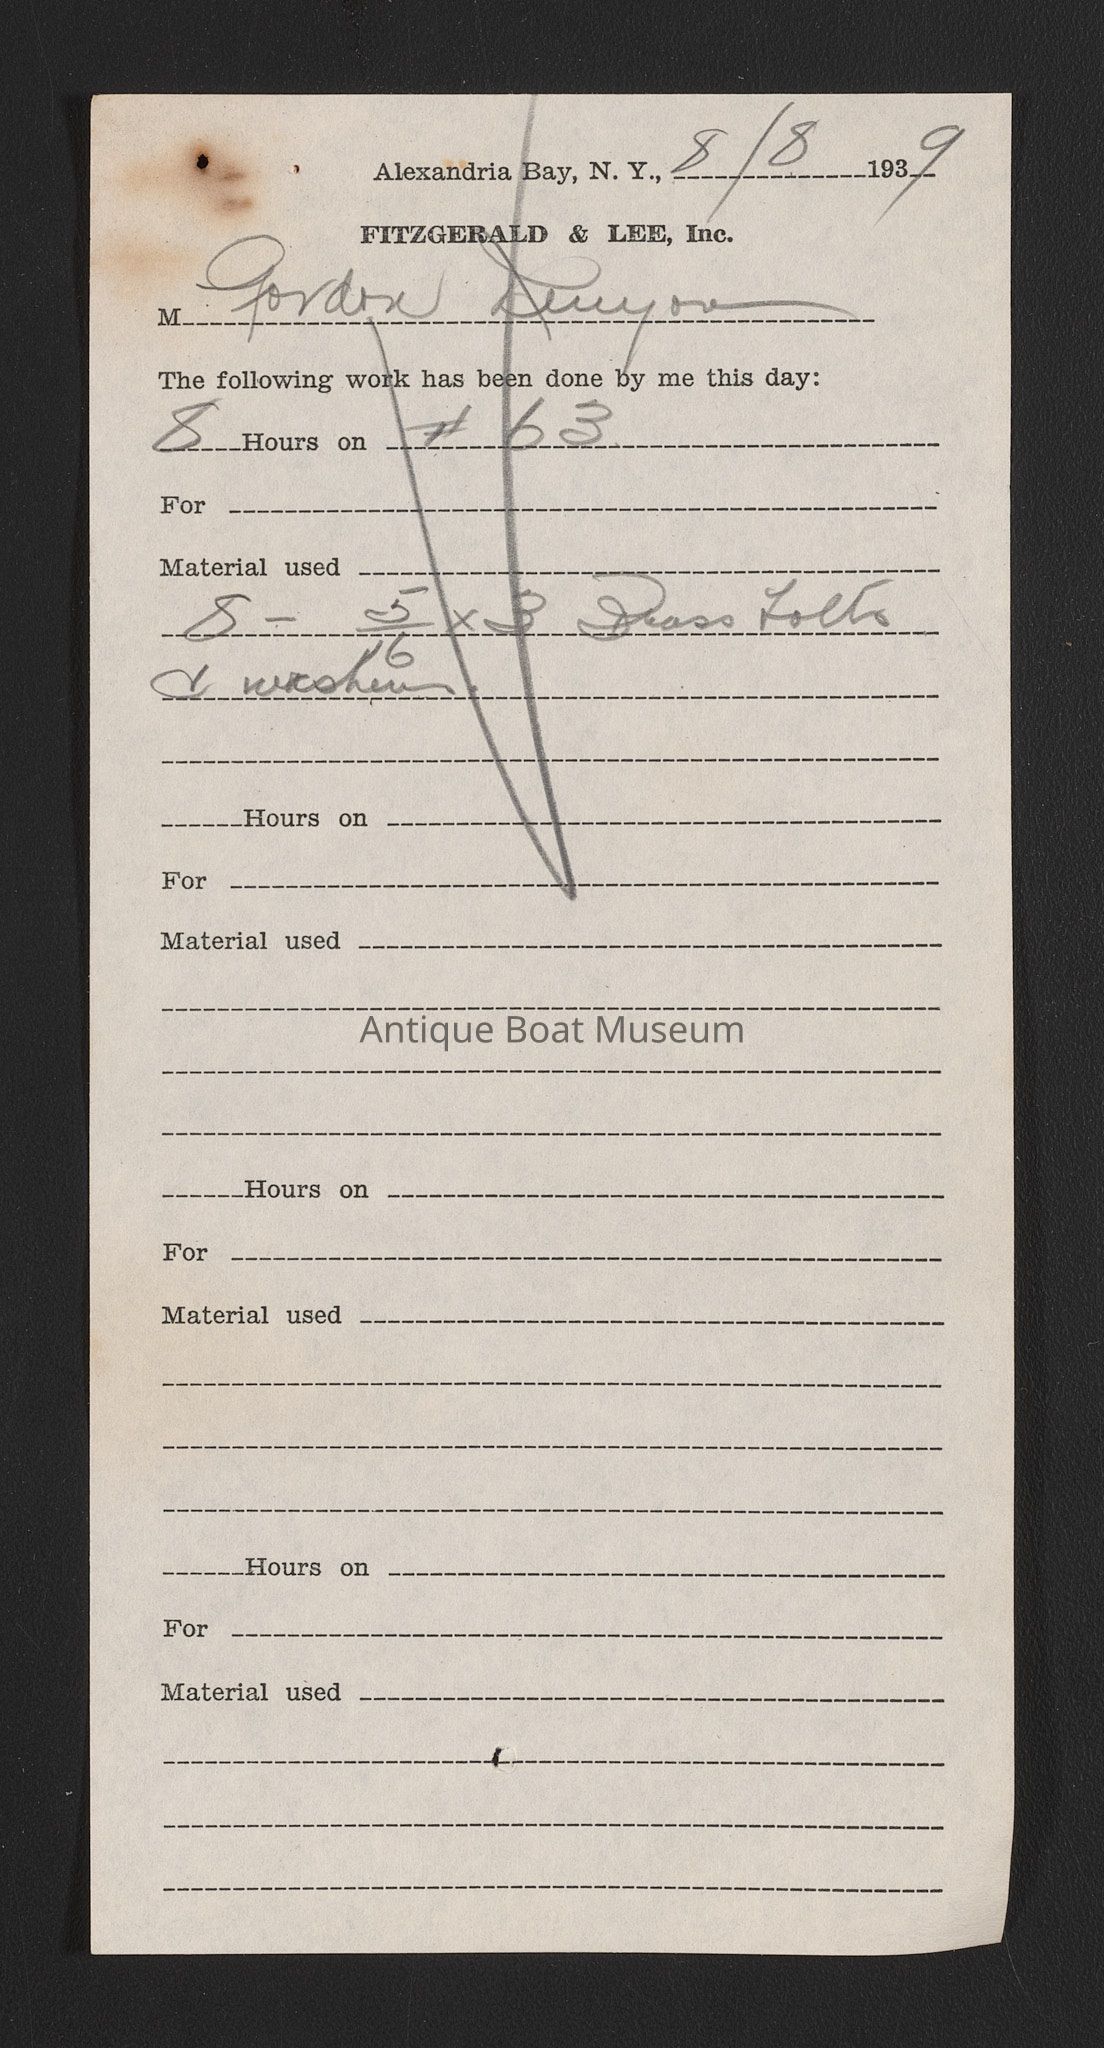 Alexandria Bay, N. Y., 8/8 1939
FITZGERALD & LEE, Inc.
M Gordon Kenyon
The following work has been done by me this day:
8 Hours on # 63
For
Material used
8 - 5/16 x 3 Brass bolts
& washers.
Hours on
For
Material used
Antique Boat Museum
Hours on
For
Material used
Hours on
For
Material used